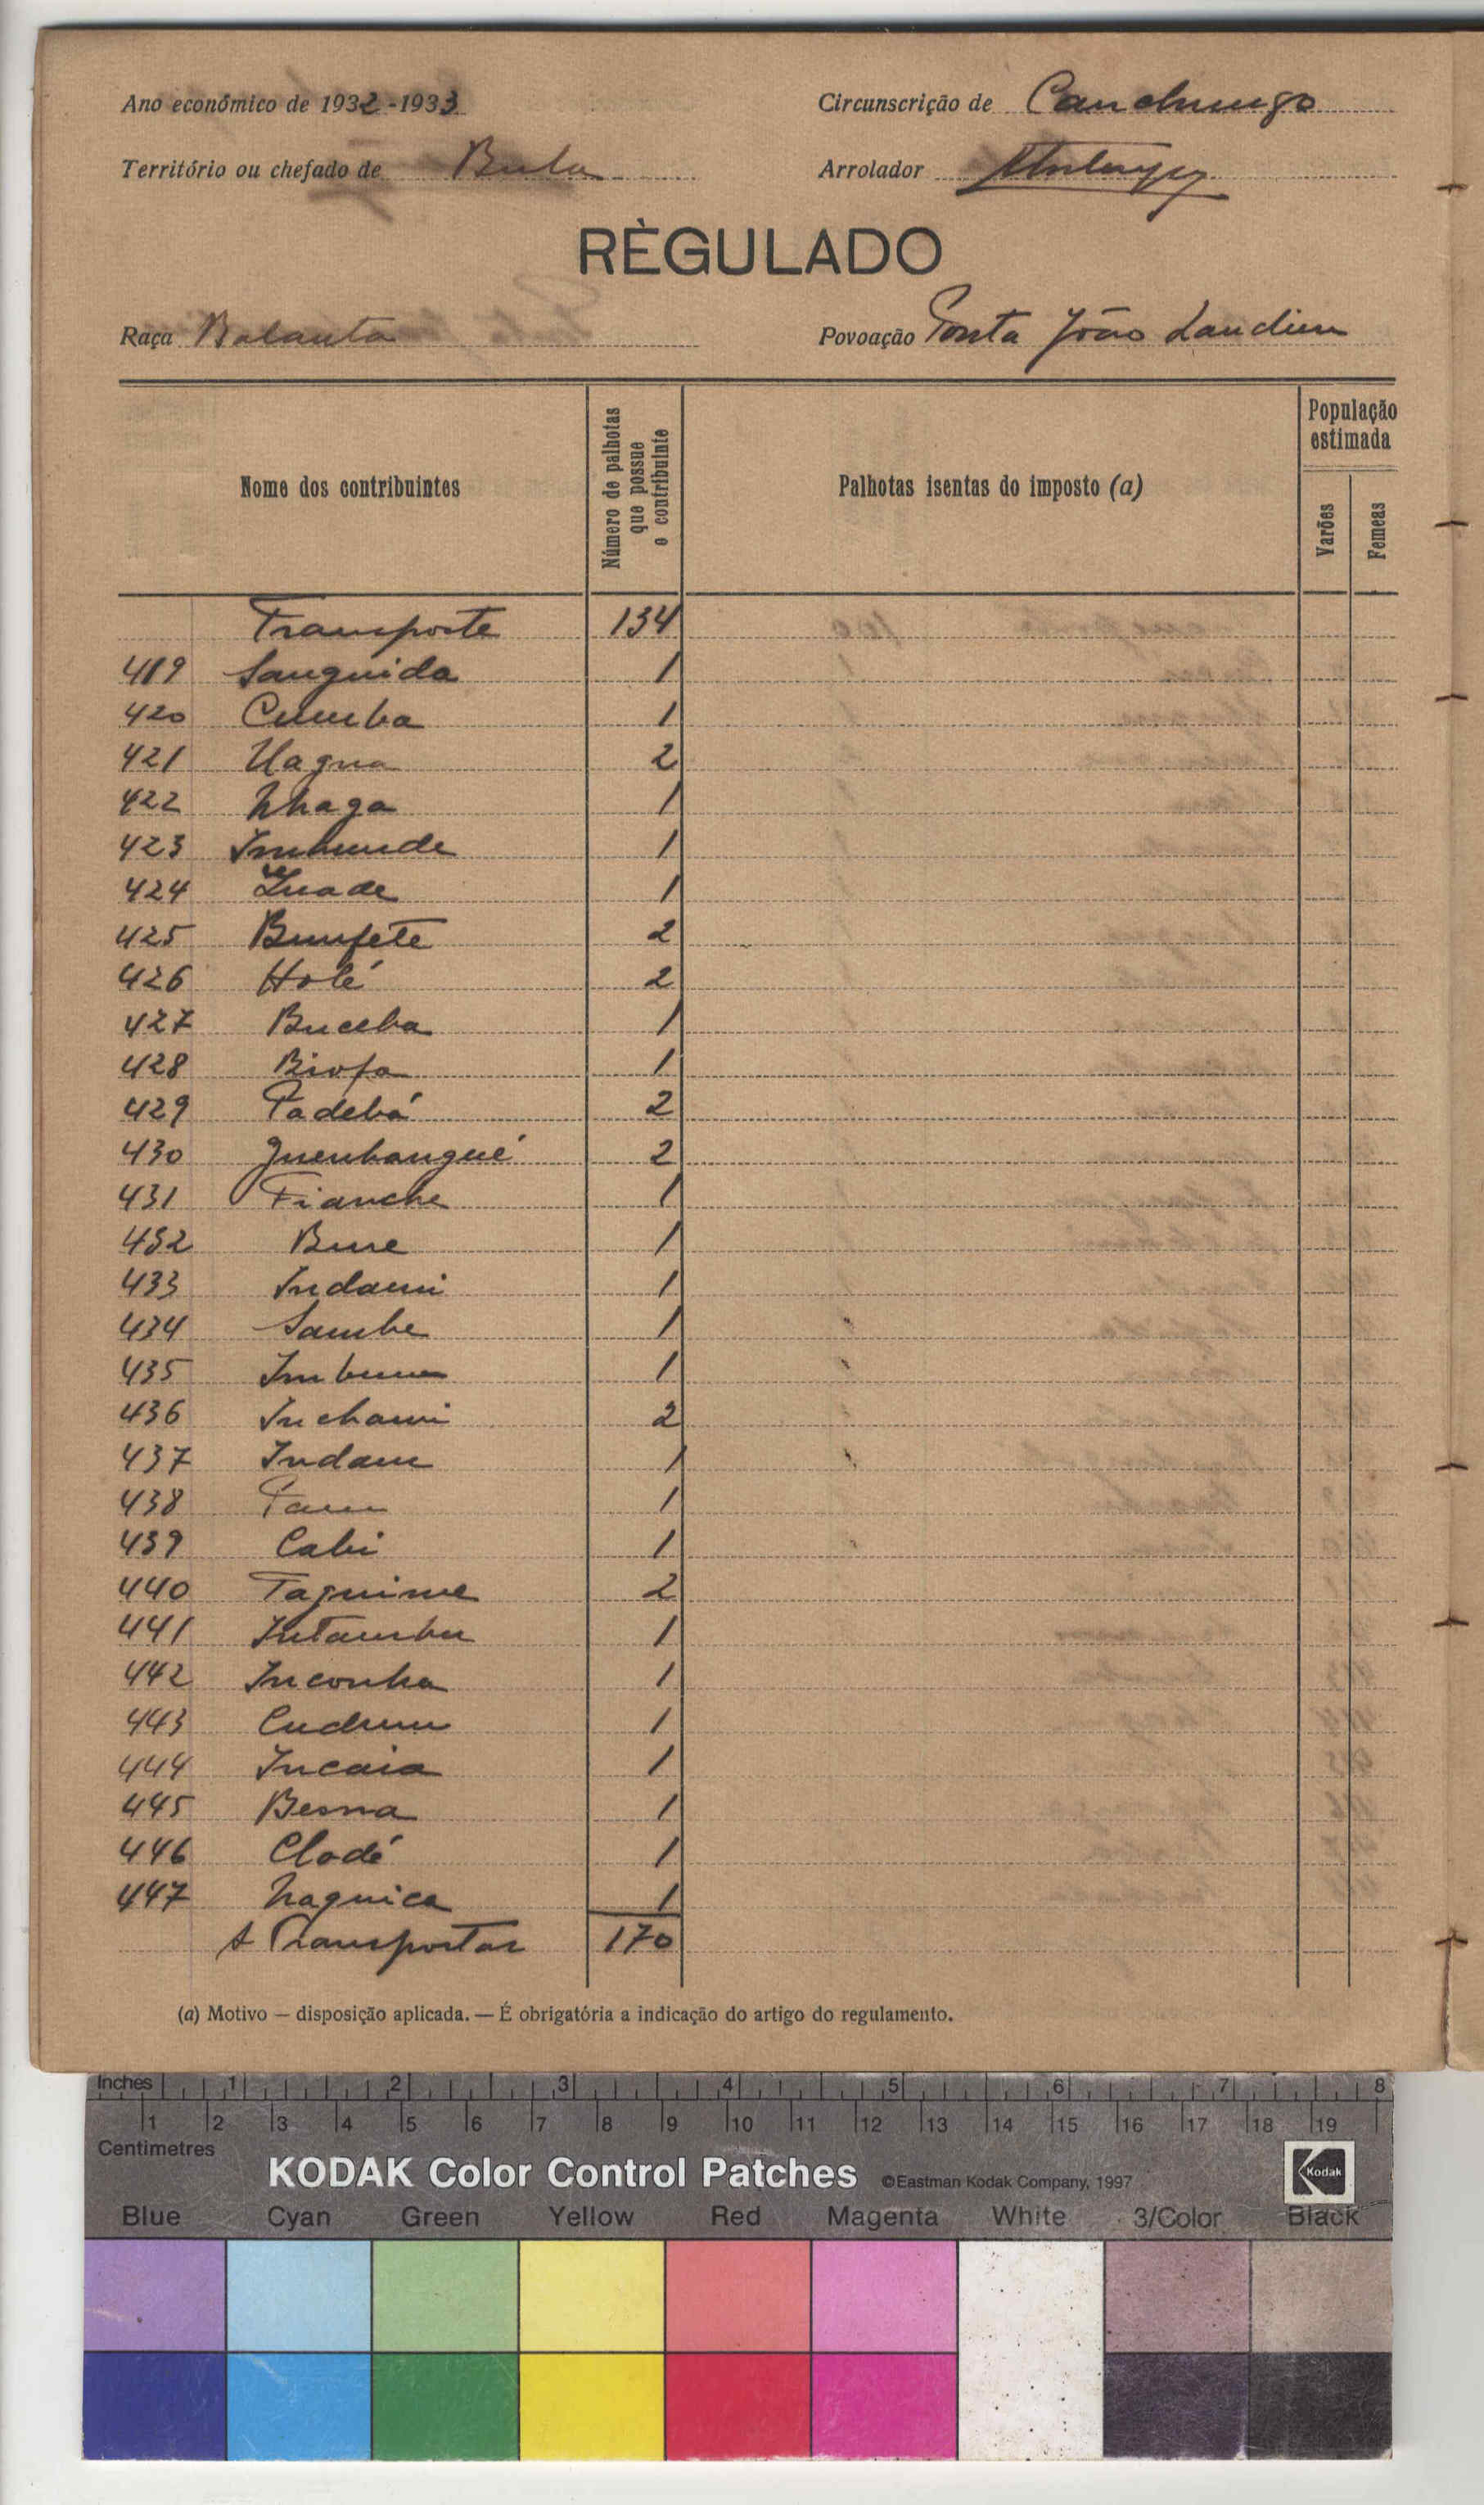 Ano económico de 1932-1933
Circunscrição de Canchungo
Território ou chefado de Bula
Arrolador
RÈGULADO
Raça Balanta
Povoação Ponta João Landim
Nome dos contribuintes
Número de palhotas que possue o contribuinte
Palhotas isentas do imposto (a)
População estimada
Varões
Femeas
Transporte 134
419 Sanguida 1
420 Cumba 1
421 Uagna 2
422 Nhaga 1
423 1
424 1
425 Bunfete 2
426 Holé 2
427 Buceba 1
428 Biofa 1
429 Padebá 2
430 Quenhangué 2
431 Fianche 1
432 Bure 1
433 Indami 1
434 Sambe 1
435 1
436 Inchami 2
437 Indam 1
438 1
439 Cabi 1
440 Taguime 2
441 Intambu 1
442 Inconha 1
443 1
444 Incaia 1
445 Besna 1
446 Clodé 1
447 Naguica 1
A Transportar 170
(a) Motivo — disposição aplicada. — É obrigatória a indicação do artigo do regulamento.
Inches 1 2 3 4 5 6 7 8
1 2 3 4 5 6 7 8 9 10 11 12 13 14 15 16 17 18 19
Centimetres
KODAK Color Control Patches ©Eastman Kodak Company, 1997 Kodak
Blue Cyan Green Yellow Red Magenta White 3/Color Black